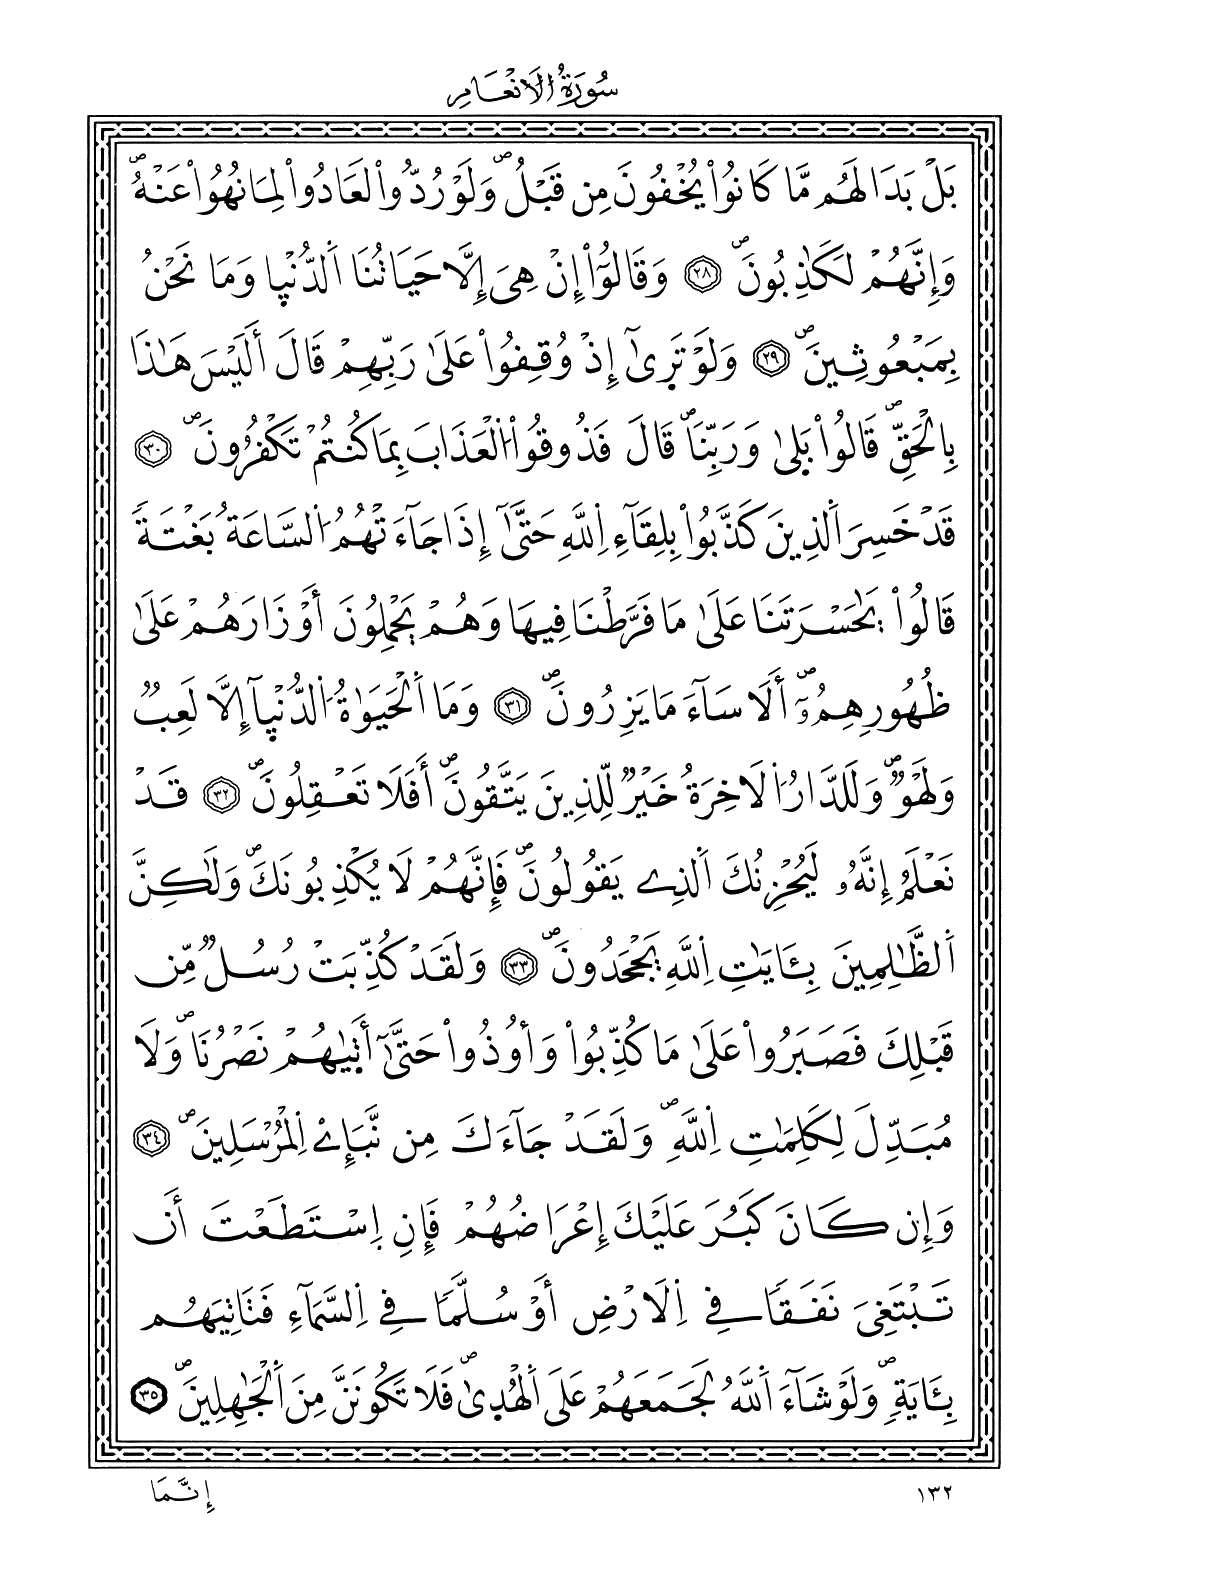 سُورَةُ الَانْعَامِ
بَلْ بَدَا لَهُم مَّا كَانُواْ يُخْفُونَ مِن قَبْلُۖ وَلَوْ رُدُّواْ لَعَادُواْ لِمَا نُهُواْ عَنْهُۖ
وَإِنَّهُمْ لَكَٰذِبُونَۖ ٢٨ وَقَالُوٓاْ إِنْ هِيَ إِلَّا حَيَاتُنَا اَ۬لدُّنْي۪ا وَمَا نَحْنُ
بِمَبْعُوثِينَۖ ٢٩ وَلَوْ تَر۪ىٰٓ إِذْ وُقِفُواْ عَلَىٰ رَبِّهِمْ قَالَ أَلَيْسَ هَٰذَا
بِالْحَقِّۖ قَالُواْ بَل۪ىٰ وَرَبِّنَاۖ قَالَ فَذُوقُواْ اُ۬لْعَذَابَ بِمَا كُنتُمْ تَكْفُرُونَۖ ٣٠
قَدْ خَسِرَ اَ۬لذِينَ كَذَّبُواْ بِلِقَآءِ اِ۬للَّهِ حَتَّىٰٓ إِذَا جَآءَتْهُمُ اُ۬لسَّاعَةُ بَغْتَةٗ
قَالُواْ يَٰحَسْرَتَنَا عَلَىٰ مَا فَرَّطْنَا فِيهَا وَهُمْ يَحْمِلُونَ أَوْزَارَهُمْ عَلَىٰ
ظُهُورِهِمُۥٓۖ أَلَا سَآءَ مَا يَزِرُونَۖ ٣١ وَمَا اَ۬لْحَيَوٰةُ اُ۬لدُّنْي۪آ إِلَّا لَعِبٞ
وَلَهْوٞۖ وَلَلدَّارُ اُ۬لَاخِرَةُ خَيْرٞ لِّلذِينَ يَتَّقُونَۖ أَفَلَا تَعْقِلُونَۖ ٣٢ قَدْ
نَعْلَمُ إِنَّهُۥ لَيُحْزِنُكَ اَ۬لذِے يَقُولُونَۖ فَإِنَّهُمْ لَا يُكْذِبُونَكَۖ وَلَٰكِنَّ
اَ۬لظَّٰلِمِينَ بِـَٔايَٰتِ اِ۬للَّهِ يَجْحَدُونَۖ ٣٣ وَلَقَدْ كُذِّبَتْ رُسُلٞ مِّن
قَبْلِكَ فَصَبَرُواْ عَلَىٰ مَا كُذِّبُواْ وَأُوذُواْ حَتَّىٰٓ أَت۪ىٰهُمْ نَصْرُنَاۖ وَلَا
مُبَدِّلَ لِكَلِمَٰتِ اِ۬للَّهِۖ وَلَقَدْ جَآءَكَ مِن نَّبَإِےْ اِ۬لْمُرْسَلِينَۖ ٣٤
وَإِن كَانَ كَبُرَ عَلَيْكَ إِعْرَاضُهُمْ فَإِنِ اِ۪سْتَطَعْتَ أَن
تَبْتَغِيَ نَفَقاٗ فِے اِ۬لَارْضِ أَوْ سُلَّماٗ فِے اِ۬لسَّمَآءِ فَتَاتِيَهُم
بِـَٔايَةٖۖ وَلَوْ شَآءَ اَ۬للَّهُ لَجَمَعَهُمْ عَلَى اَ۬لْهُد۪ىٰۖ فَلَا تَكُونَنَّ مِنَ اَ۬لْجَٰهِلِينَۖ ٣٥
١٣٢ إِنَّمَا